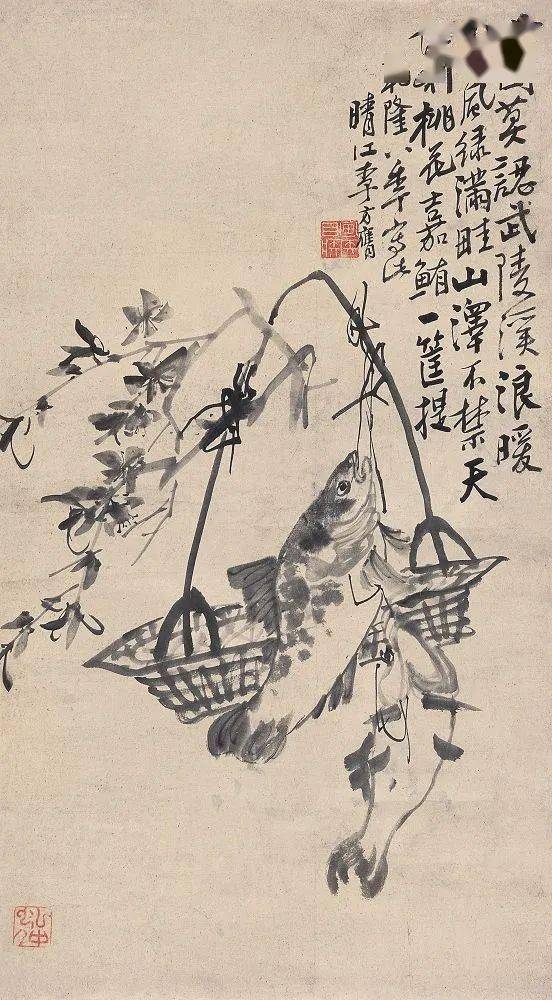 莫認武陵溪浪暖
風綠滿畦山澤不禁天
桃花嘉鮪一筐提
隆八年寫此
晴江李方膺